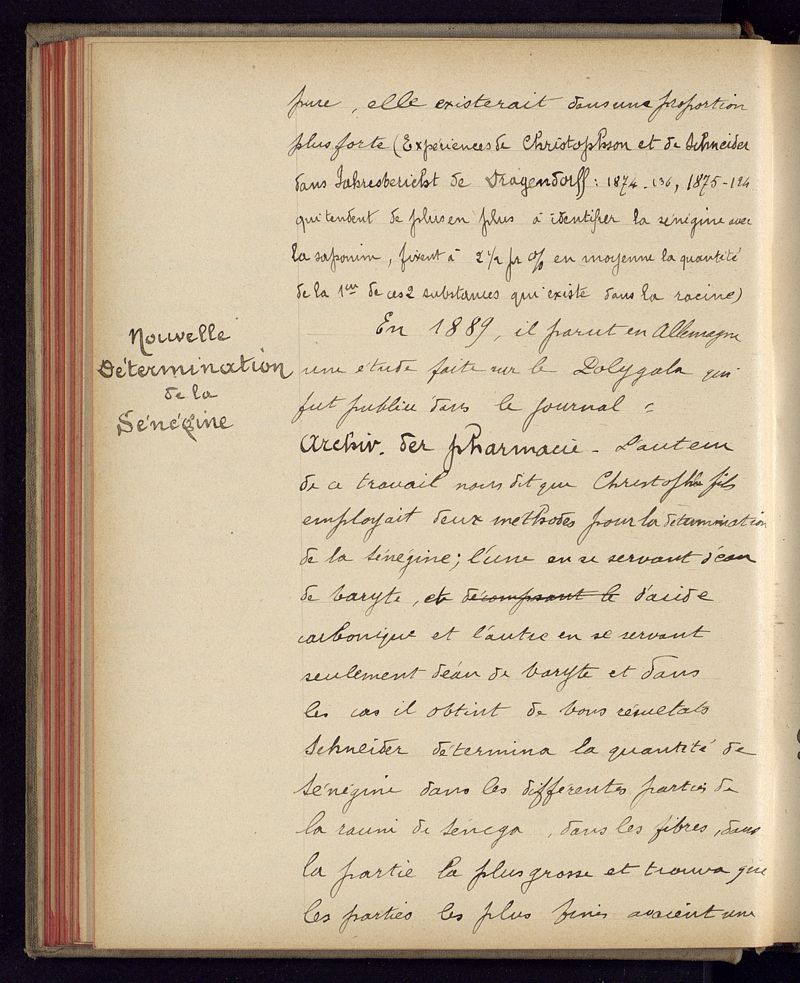 pure, elle existerait dans une proportion
plus forte (Expériences de Christophson et de Schneider
dans Jahresbericht de Dragendorff : 1874 - 136, 1875 - 124
qui tendent de plus en plus à identifier la sénégine avec
la saponine, fixent à 2 1/2 pr % en moyenne la quantité
de la 1ère de ces 2 substances qui existe dans la racine)
Nouvelle
Détermination
de la
Sénégine
En 1889, il parut en Allemagne
une étude faite sur le Polygala qui
fut publiée dans le journal =
Archiv. der pharmacie - L'auteur
de ce travail nous dit que
employait deux méthodes pour la détermination
de la sénégine; l'une en se servant d'eau
de baryte, et décomposant le d'acide
carbonique et l'autre en se servant
seulement d'eau de baryte et dans
les cas il obtint de bons résultats
Schneider détermina la quantité de
sénégine dans les différentes parties de
la racine de sénéga, dans les fibres, dans
la partie la plus grosse et trouva que
les parties les plus fines avaient une